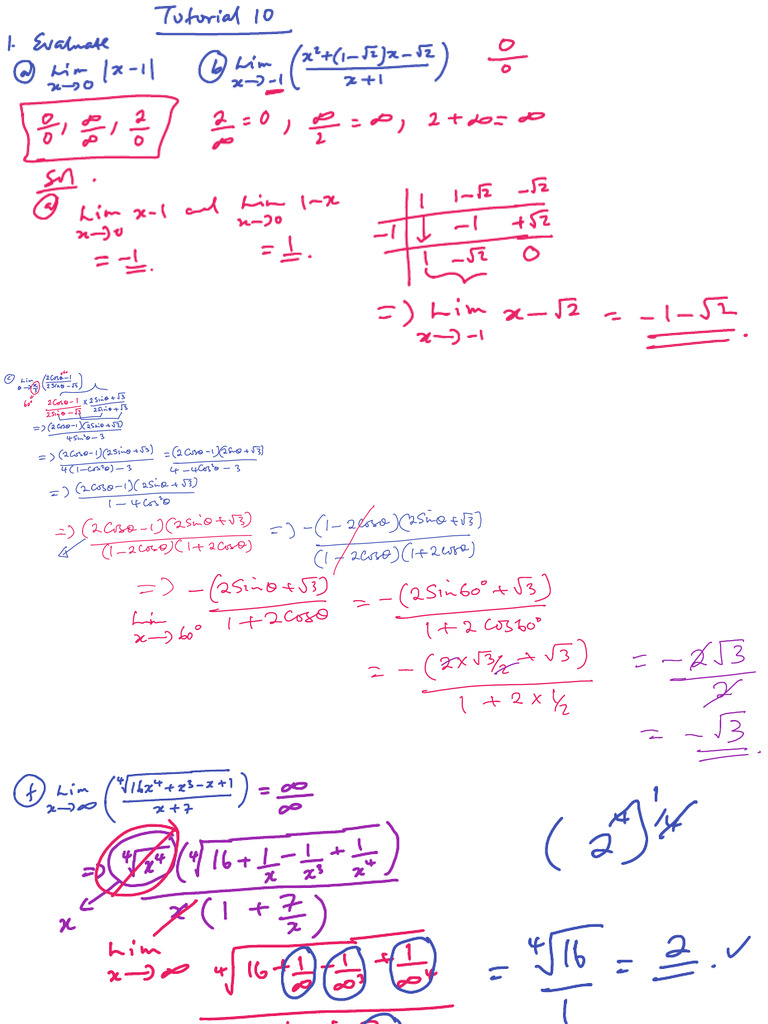 Tutorial 10
1. Evaluate
(a) Lim x→0 |x-1| (b) Lim x→-1 ((x²+(1-√2)x-√2)/(x+1)) 0/0
0/0, ∞/∞, 2/0 2/∞ = 0, ∞/2 = ∞, 2+∞ = ∞
Sol.
(a) Lim x→0 x-1 and Lim x→0 1-x
= -1. = 1.
1 1-√2 -√2
-1 ↓ -1 +√2
1 -√2 0
=> Lim x→-1 x-√2 = -1-√2.
(c) Lim ((2Cosθ-1)/(2Sinθ-√3))
60°
(2Cosθ-1)/(2Sinθ-√3) × (2Sinθ+√3)/(2Sinθ+√3)
=> (2Cosθ-1)(2Sinθ+√3)/(4Sin²θ-3)
=> (2Cosθ-1)(2Sinθ+√3)/(4(1-Cos²θ)-3) = (2Cosθ-1)(2Sinθ+√3)/(4-4Cos²θ-3)
=> (2Cosθ-1)(2Sinθ+√3)/(1-4Cos²θ)
=> (2Cosθ-1)(2Sinθ+√3)/((1-2Cosθ)(1+2Cosθ)) => -(1-2Cosθ)(2Sinθ+√3)/((1-2Cosθ)(1+2Cosθ))
=> Lim x→60° -(2Sinθ+√3)/(1+2Cosθ) = -(2Sin60°+√3)/(1+2Cos60°)
= -(2×√3/2+√3)/(1+2×1/2) = -2√3/2
= -√3.
(f) Lim x→∞ (⁴√(16x⁴+x³-x+1)/(x+7)) = ∞/∞
=> ⁴√x⁴ (⁴√(16+1/x-1/x³+1/x⁴))/(x(1+7/x)) (2⁴)^1/4
x
Lim x→∞ ⁴√(16+1/∞-1/∞³+1/∞⁴) = ⁴√16/1 = 2. ✓